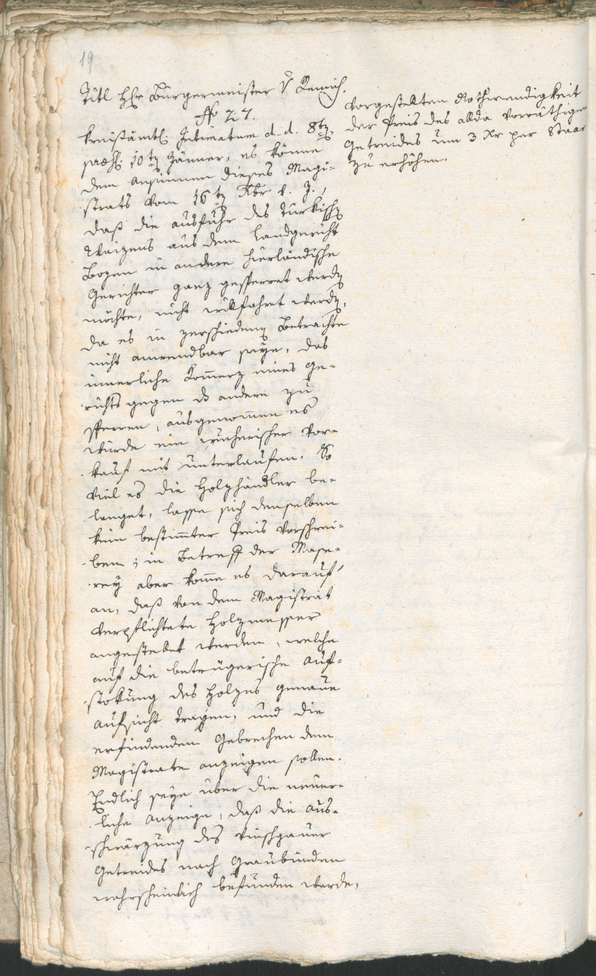 19
Titl Hr Bürgermeister v Remich.
No 27.
Kreisämtl. Intimatum d. d. 8t
praes. 10t Jänner, es könne
dem Ansinnen dieses Magi-
strats vom 16t Xbr v. J.,
daß die Ausfuhr des türkisch
Weizens aus dem Landgericht
Bozen in andere hierländische
Gerichter ganz gesperret werd
möchte, nicht willfahret werd,
da es in verschieden Betrachte
nicht anwendbar seye, das
innerliche Komerz eines Ge-
richts gegen d andere zu
sperren, ausgenommen es
würde ein wucherischer Vor-
kauf mit unterlaufen. So
viel es die Holzhändler be-
langet, lasse sich denselben
kein bestimter Preis vorschrei-
ben; in Betreff der Mase-
rey aber kome es darauf
an, daß von dem Magistrat
verpflichtete Holzmesser
angestellet werden, welche
auf die betrügerische Auf-
stockung des Holzes genaue
Aufsicht tragen, und die
erfindenden Gebrechen dem
Magistrate anzeigen sollen.
Endlich seye über die neuer-
liche Anzeige, daß die Aus-
schwärzung des Vinschgauer
Getreides nach Graubünden
wahrscheinlich befunden werde,
vorgestellten Nothwendigkeit
der Preis des alda vorräthigen
Getreides um 3 Xr per Staar
zu erhöhen.